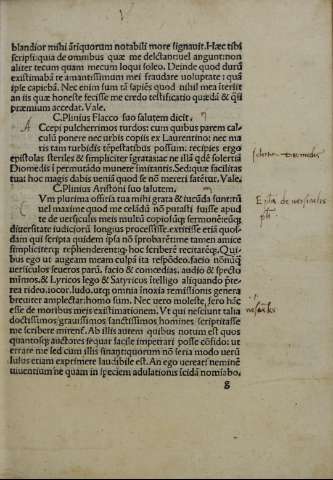 blandior mihi átiquorum notabili more signauit. Hæc tibi
scripsi: quia de omnibus quæ me delectant uel angunt: non
aliter tecum quam mecum loqui soleo. Deinde quod durũ
existimabã te amantissimum mei fraudare uoluptate: quã
ipse capiebã. Nec enim sum tã sapiẽs quod nihil mea iterit
an iis quæ honeste fecisse me credo testificatio quædã & q̃si
præmium accedat. Vale.
C. Plinius Flacco suo salutem dicit.
A Ccepi pulcherrimos turdos: cum quibus parem cal-
culũ ponere nec urbis copiis ex Laurentino: nec ma
ris tam turbidis tẽpestatibus possum: recipies ergo
epistolas steriles & simpliciter ĩgratas: ac ne illã qdẽ solertiã
Diomedis ĩ permutãdo munere imitantis. Sed quæ facilitas
tua: hoc magis dabis ueniã quod se nõ mereri fatẽtur. Vale.
C. Plinius Aristoni suo salutem.
Vm plurima officia tua mihi grata & iucũda sunt: tũ
uel maxime quod me celãdũ nõ putasti fuisse apud
te de uersiculis meis multũ copiosũq; sermonẽ: euq;
diuersitate iudiciorũ longius processisse. extitisse etiã quos-
dam qui scripta quidem ipsa nõ improbarẽt: me tamen amice
simpliciterq; reprehenderent: q̃ hoc scriberẽ recitarẽq;. Qui-
bus ego ut augeam meam culpã ita respõdeo. facio nõnũq̃
uersiculos seueros parũ. facio & comœdias. audio & specto
mimos. & Lyricos lego & Satyricos itelligo aliquando præ-
terea rideo. iocor. ludo. utq; omnia inoxia remissionis genera
breuiter amplectar: homo sum. Nec uero moleste fero hãc
esse de moribus meis existimationem. Vt qui nesciunt talia
doctissimos: grauissimos: sanctissimos homines scriptitasse
me scribere mirent̃. Ab illis autem quibus notum est quos
quantosq; auctores seq̃r: facile impetrari posse cõfido: ut
errare me sed cum illis sinant: quorum nõ seria modo uerũ
lusus etiam exprimere laudabile est. An ego uerear: neminẽ
uiuentium ne quam in speciem adulationis icidã nomĩabo.
g
Epl̃a de uersiculis